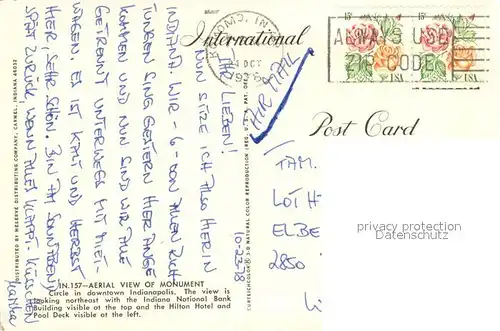 International
AIR MAIL
KOKOMO, IN
OCT
ALWAYS USE
ZIP CODE
15c
15c
USA
USA
Post Card
IHR LIEBEN!
NUN SITZE ICH ALSO HIER IN
INDIANA. WIR - 6 - VON ALLEN RICH
TUNGEN SIND GESTERN HIER ANGE
KOMMEN UND NUN SIND WIR ALLE
GETRENNT UNTERWEGS MIT MIET-
WAGEN. ES IST KALT UND HERBST
HIER, SEHR SCHÖN. BIN AM SONNTABEND
SPÄT ZURÜCK WENN ALLES KLAPPT. KÜSSCHEN
10-23-78
FAM.
ELBE
2850
privacy protection
Datenschutz
DISTRIBUTED BY RESERVE DISTRIBUTING COMPANY, CARMEL, INDIANA 46032
CURTEICHCOLOR® 3-D NATURAL COLOR REPRODUCTION (REG. U.S.A. PAT. OFF.)
IN.157—AERIAL VIEW OF MONUMENT
Circle in downtown Indianapolis. The view is
looking northeast with the Indiana National Bank
Building visible at the top and the Hilton Hotel and
Pool Deck visible at the left.